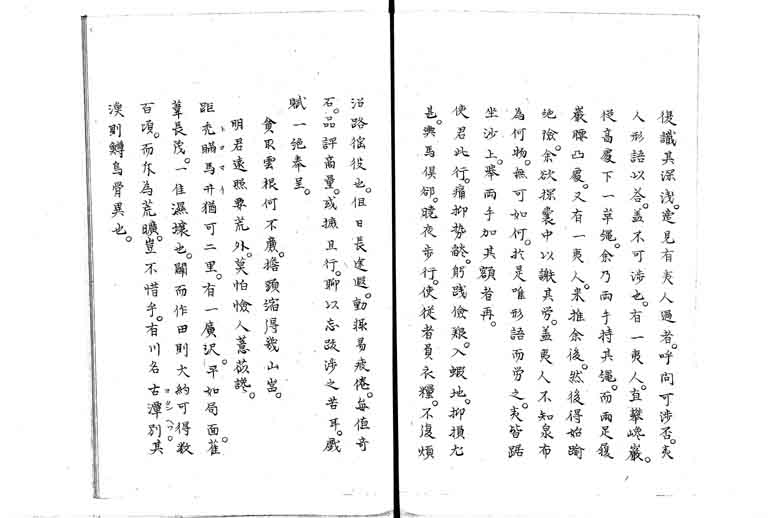 復識其深浅。適見有夷人過者。呼問可渉否。夷
人形語以答。蓋不可渉也。有一夷人。直攀巉巌。
從高處下一草繩。余乃両手持其繩。而両足履
巌腰凸處。又有一夷人。来推余後。然後得始踰
絶險。余欲探嚢中以謝其労。蓋夷人不知泉布
為何物。無可如何。於是唯形語而労之。夷皆踞
坐沙上。擧両手加其額者再。
使君此行。痛抑勢燄。躬踐儉艱。入蝦地。抑損尤
甚。輿馬倶卻。曉夜歩行。使從者負衣糧。不復煩
沿路徭役也。但日長途遐。動輙易疲倦。毎値奇
石。品評高量。或摭且行。聊以忘跋渉之苦耳。戯
賦一絶奉呈。
貪取雲根何不廉。擔頭縮得幾山嵓。
明君遠照要荒外。莫怕憸人薏苡讒。
距禿瞞馬廾猶可二里。有一廣沢。平如局面。萑
葦長茂。一佳濕壌也。闢而作田則大約可得数
百頃。而斥為荒曠。豈不惜乎。有川名古潭別。其
漠則鱒鳥骨異也。